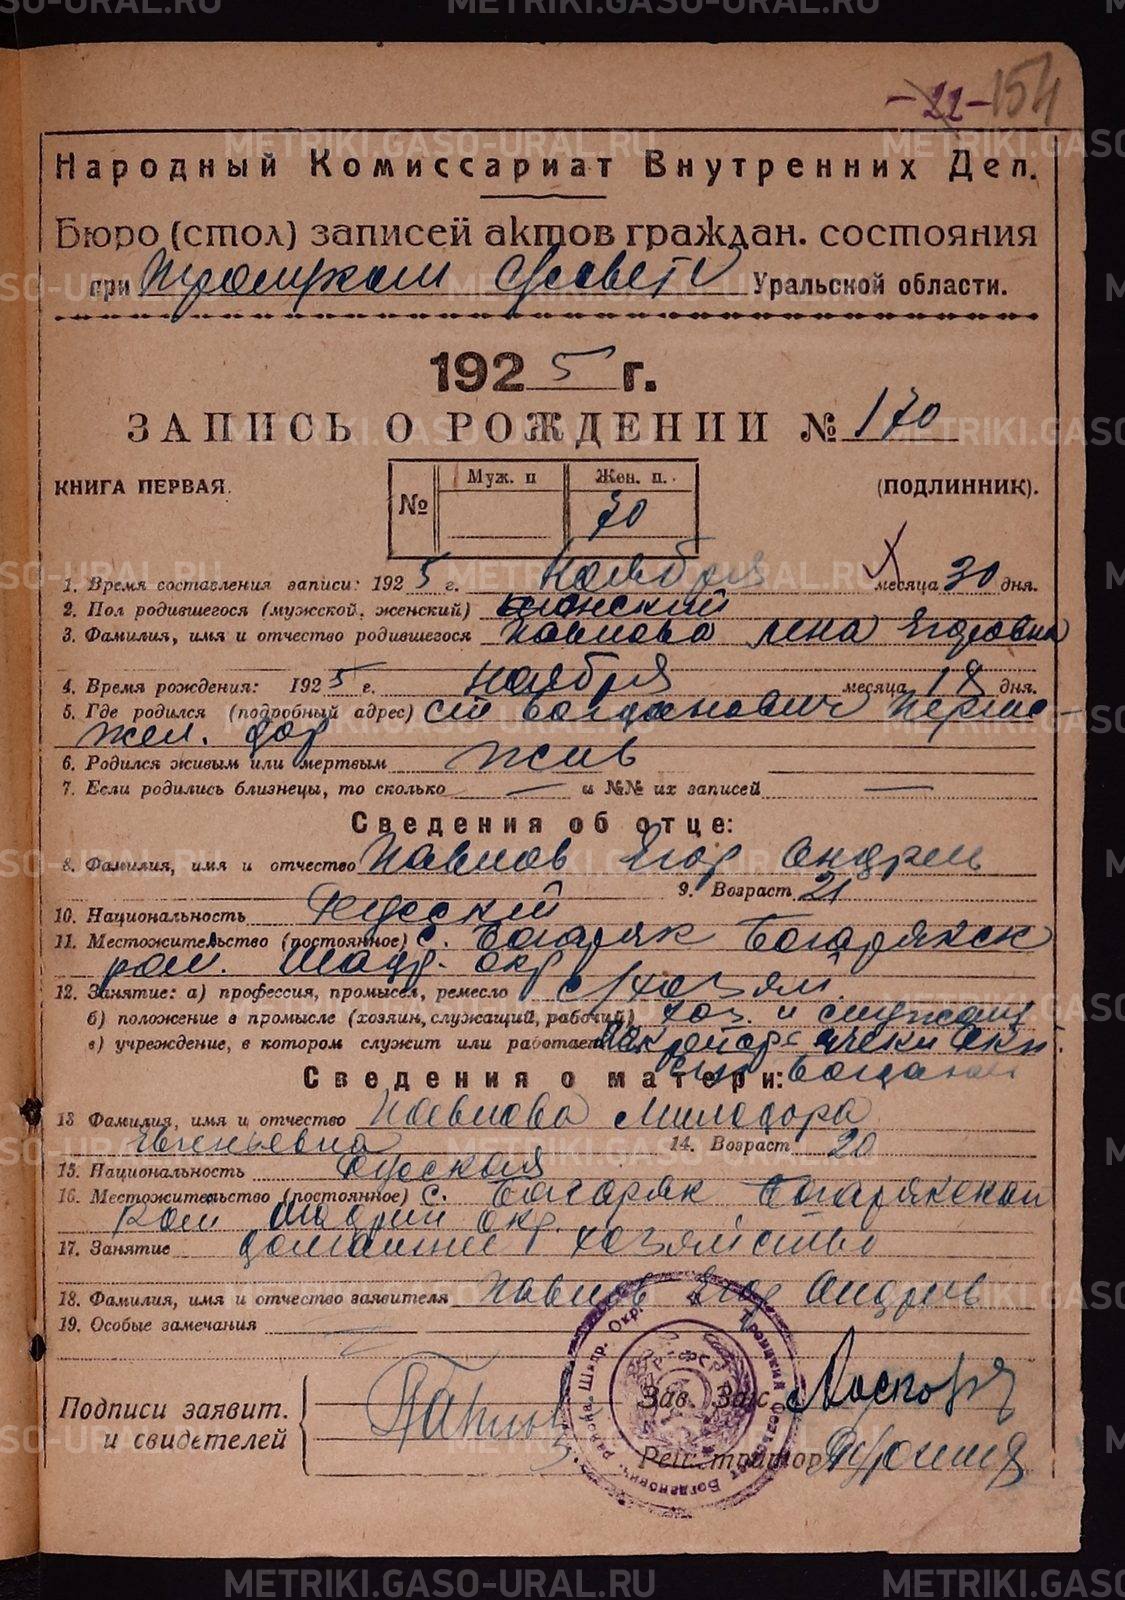 -22- 154
Народный Комиссариат Внутренних Дел.
Бюро (стол) записей актов граждан. состояния
при Троицком с/совете Уральской области.
1925 г.
ЗАПИСЬ О РОЖДЕНИИ № 170
КНИГА ПЕРВАЯ. № Муж. п Жен. п. 70 (ПОДЛИННИК).
1. Время составления записи: 1925 г. Ноября месяца 30 дня.
2. Пол родившегося (мужской, женский) женский
3. Фамилия, имя и отчество родившегося Павлова Лена Егоровна
4. Время рождения: 1925 г. ноября месяца 18 дня.
5. Где родился (подробный адрес) ст Богданович Пермс-
жел. дор
6. Родился живым или мертвым жив
7. Если родились близнецы, то сколько — и №№ их записей —
Сведения об отце:
8. Фамилия, имя и отчество Павлов Егор Андреев
9. Возраст 21
10. Национальность Русский
11. Местожительство (постоянное) с. Багаряк Багарякск
рай. Шадр. окр
12. Занятие: а) профессия, промысел, ремесло с/хозяин.
б) положение в промысле (хозяин, служащий, рабочий) хоз. и служащ
в) учреждение, в котором служит или работает
Сведения о матери:
13 Фамилия, имя и отчество Павлова Милодора
14. Возраст 20
15. Национальность Русская
16. Местожительство (постоянное) с. Багаряк Багарякский
Рай Шадрин окр.
17. Занятие домашнее хозяйство
18. Фамилия, имя и отчество заявителя Павлов Егор Андреев
19. Особые замечания
Подписи заявит.
и свидетелей
Зав. Загс
Регистратор
Троицкий Сельсовет Богданович. района Шадр. Окр.
РСФСР
METRIKI.GASO-URAL.RU